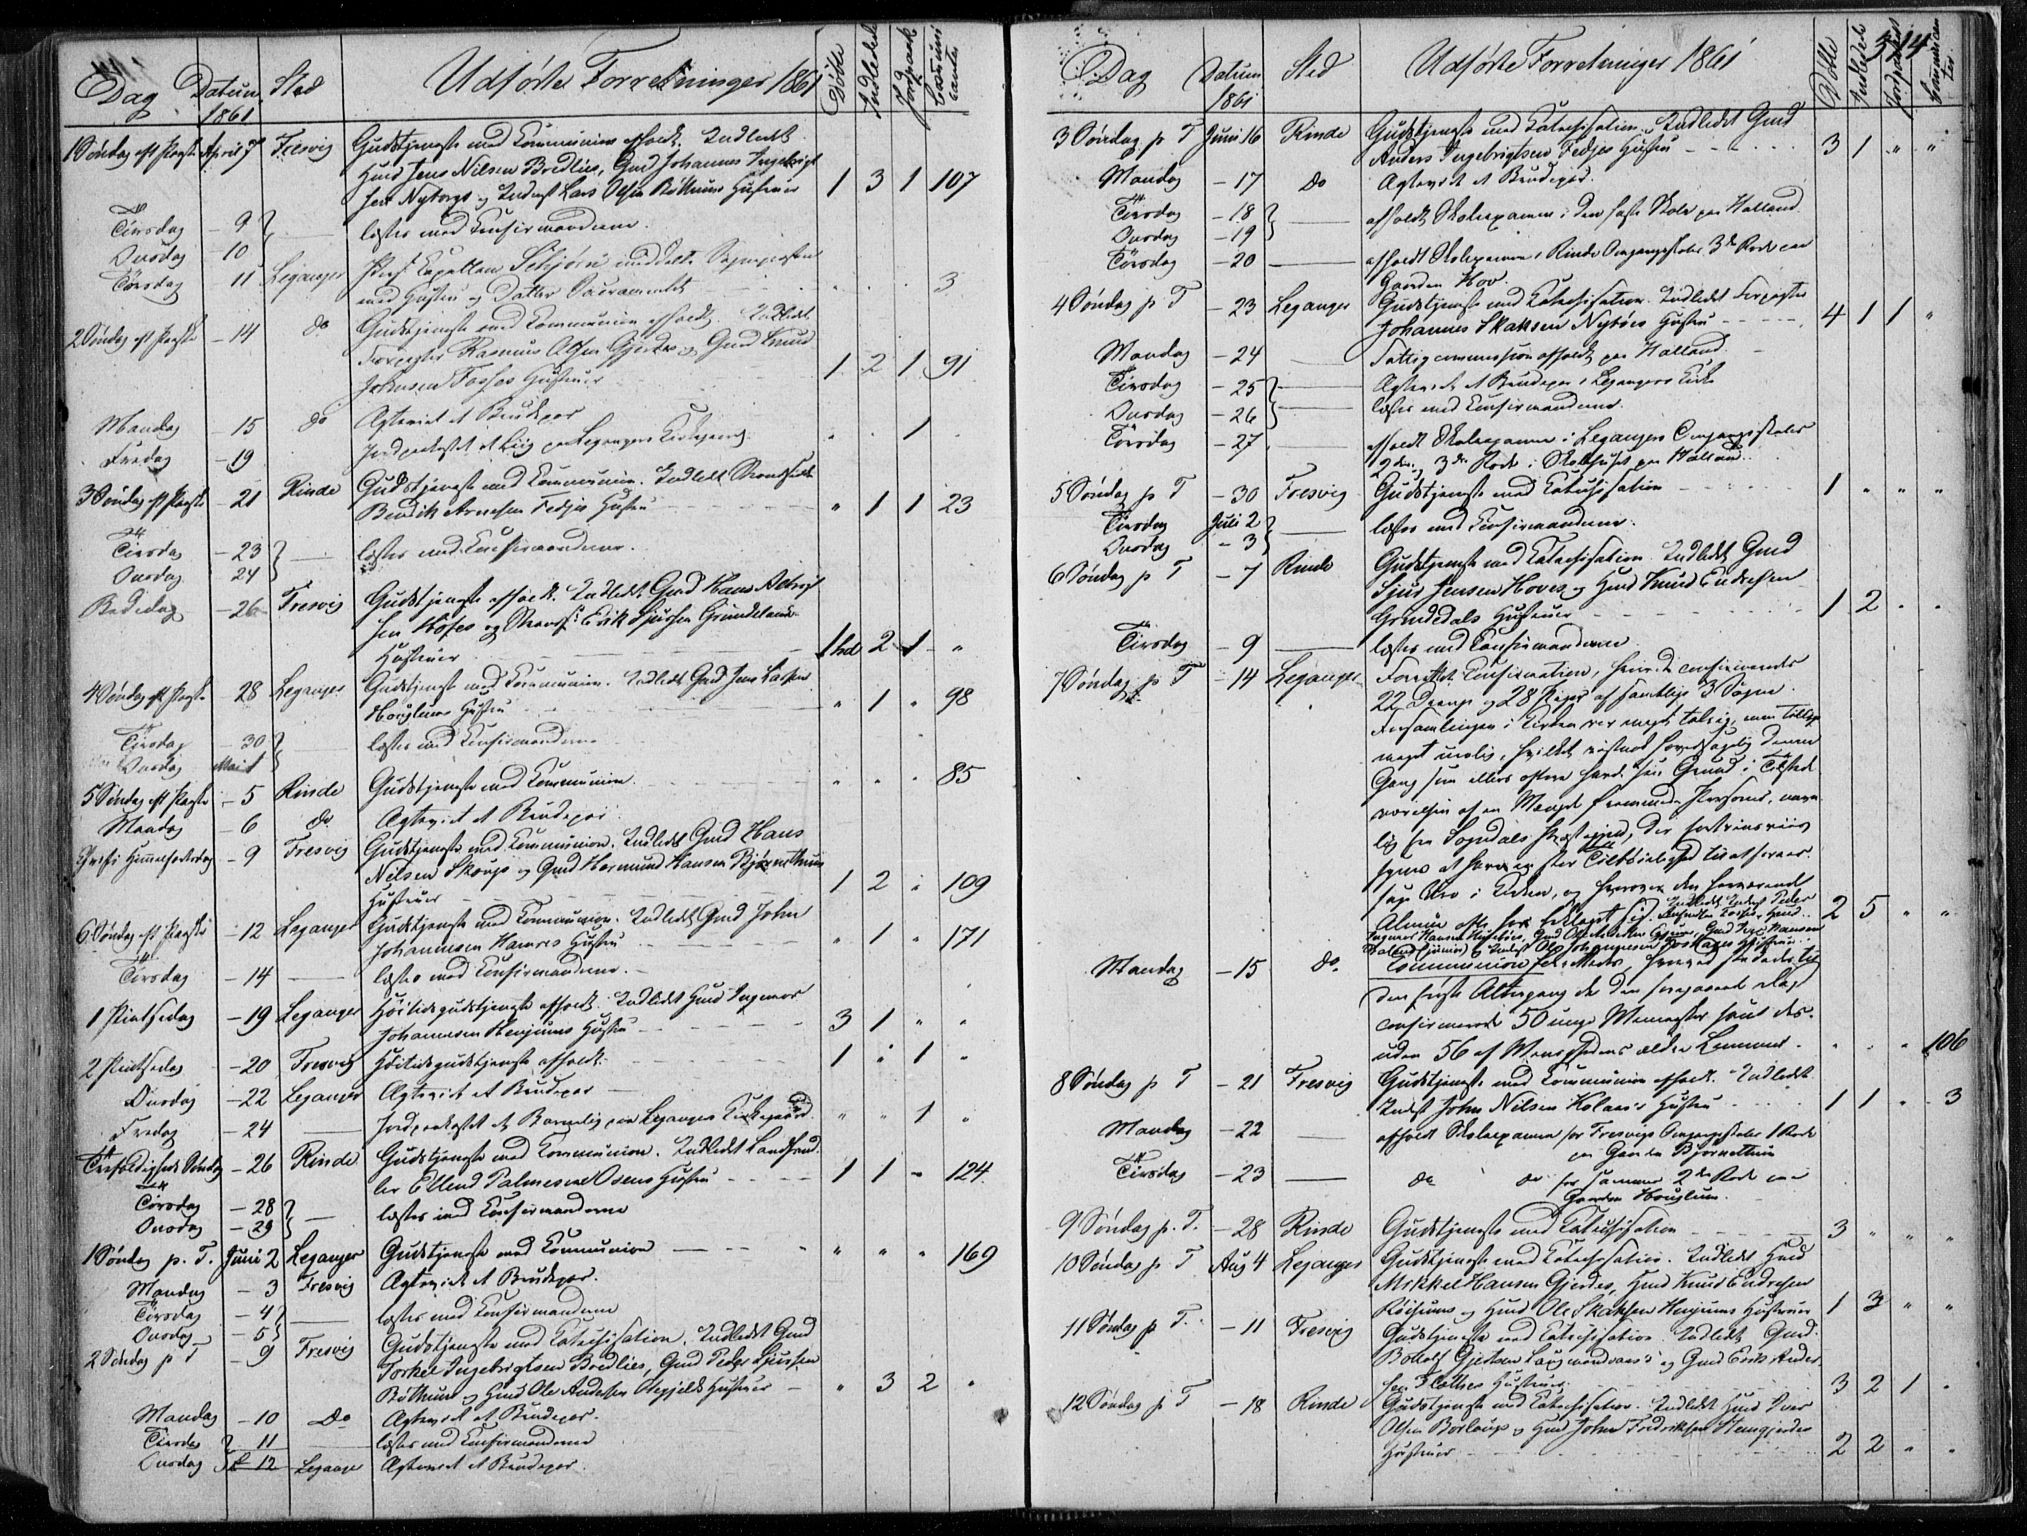 Dag Datum 1861 Sted Udførte Forretninger 1861 Døbte Indledede Jordpaak. Communicanter
1 Søndag eft Paaske April 7 Fresvig Gudstjeneste med Kommunion afholdt. Indledet
Huus Jens Nilsen Bredlies, Gmd Johannes Ingebrigt
sen Nybergs og Inderst Lars Olsen Bøthuns Hustruer 1 3 1 107
Tirsdag - 9 læstes med Confirmanderne.
Onsdag 10
Torsdag 11 Leganger Pers. Capellan meddelte Sognepræsten
med Hustru og Datter Sacramentet 3
2 Søndag eft Paaske - 14 do Gudstjeneste med Kommunion afholdt. Indledet
Forpagter Rasmus Olsen Gjerdes og Gmd Knud
Johnsen Fosses Hustruer 1 2 1 91
Mandag - 15 do Agteviet et Brudepar
Fredag - 19 Jordpaakastet et Liig paa Legangers Kirkegaard. 1
3 Søndag eft Paaske - 21 Rinde Gudstjeneste med Kommunion. Indledt
Bendik Arnesen Fedjes Hustru " 1 1 23
Tirsdag - 23 læstes med Confirmanderne.
Onsdag 24
Bededag - 26 Fresvig Gudstjeneste afholdt. Indledet Gmd Hans
sen og Erik Sjursen
Hustruer 1 hd 2 1 "
4 Søndag eft Paaske 28 Leganger Gudstjeneste med Kommunion. Indledt Gmd Jens
Hustru " 1 " 98
Tirsdag - 30 læstes med Confirmanderne
Onsdag Mai 1
5 Søndag eft Paaske - 5 Rinde Gudstjeneste med Kommunion. " " " 85
Mandag - 6 do Agteviet et Brudepar
Christi Himmelfartsdag - 9 Fresvig Gudstjeneste med Kommunion. Indledet Gmd Hans
Nilsen og Gmd Hermund Hansen Bjørnethuns
Hustruer 1 2 " 109
6 Søndag eft Paaske - 12 Leganger Gudstjeneste med Kommunion. Indledet Gmd John
Johannesen Hamres Hustru " 1 " 171
Tirsdag - 14 læstes med Confirmanderne.
1 Pintsedag - 19 Leganger Høitidsgudstjeneste afholdt. Indledet Huus Ingemar
Johannesen Henjums Hustru 3 1 " "
2 Pintsedag - 20 Fresvig Høitidsgudstjeneste afholdt. 1 " 1 "
Onsdag - 22 Leganger Agteviet et Brudepar
Fredag - 24 Jordpaakastet et Barnelig paa Leganger Kirkegaard. " " 1 "
Trefoldigheds Søndag - 26 Rinde Gudstjeneste med Kommunion. Indledet Landhand
ler Ellend Palmesen Osens Hustru 1 1 " 124
Tirsdag - 28 læstes med Confirmanderne
Onsdag - 29
1 Søndag p. T. Juni 2 Leganger Gudstjeneste med Kommunion " " " 169
Mandag - 3 Fresvig Agteviet et Brudepar.
Tirsdag - 4 læstes med Confirmanderne
Onsdag - 5
2 Søndag p T - 9 Fresvig Gudstjeneste med Catechisation. Indledet Gmd
Torkel Ingebrigtsen Bredlies, Gmd Peder Sjursen
Bøthun og Huus Ole Andersen Hustruer " 3 2 "
Mandag - 10 Do Agteviet et Brudepar.
Tirsdag 11 læstes med Confirmanderne
Onsdag 12 Leganger Agteviet et Brudepar.
514
Dag Datum 1861 Sted Udførte Forretninger 1861 Døbte Indledet Jordpaakast Communicanter
3 Søndag p T Juni 16 Rinde Gudstjeneste med Catechisation. Indledet Gmd
Anders Ingebrigtsen Fedjes Hustru 3 1 " "
Mandag - 17 Do Agteviet et Brudepar.
Tirsdag - 18 afholdt Skoleexamen i den faste Skole paa Holland
Onsdag - 19
Torsdag - 20 afholdt Skoleexamen i Rinde Omgangsskoles 3de Rode paa
Gaarden Hov.
4 Søndag p T - 23 Leganger Gudstjeneste med Catechisation. Indledet Forpagter
Johannes Skaksen Hustru 4 1 1 "
Mandag - 24 Fattigcommission afholdt paa Holland.
Tirsdag - 25 Agteviet et Brudepar i Legangers Kirke
Onsdag - 26 læstes med Confirmanderne.
Torsdag - 27 afholdt Skoleexamen i Legangers Omgangsskoles
2den og 3de Rode i Skolehuset paa Holland.
5 Søndag p T - 30 Fresvig Gudstjeneste med Catechisation 1 " " "
Tirsdag Juli 2 læstes med Confirmanderne.
Onsdag - 3
6 Søndag p T - 7 Rinde Gudstjeneste med Catechisation. Indledet Gmd
Sjur Jensen Hoves og Huus Knud Endresen
Grindedals Hustruer 1 2 " "
Tirsdag - 9 læstes med Confirmanderne
7 Søndag p T - 14 Leganger Forrettet Confirmation, hvorved confirmeredes
22 Drenge og 28 Piger af samtlige 3 Sogne.
Forsamlingen i Kirken var meget talrig, men tillige
meget urolig, hvilket vistnok hovedsagelig denne
Gang som ellers oftere havde sin Grund i Tilstede
værelsen af en Mængde fremmede Personer, navn
lig fra Sogndals Præstegjeld, der
synes at have en stor Tilbøielighed til at foraar
sage Uro i Kirken, og hvorover den herværende
Almue ofte har beklaget sig. Indledet Inderst Peder
2 5 " "
Ingemar Hansen Husebøes, Gmd Gmd Hansen
Holland (junior) og Inderst Ole Johannesen Hustruer.
Mandag - 15 do Communion hvorved stededes til
den første Altergang de den foregaaende Dag
confirmerede 50 unge Mennesker samt des-
uden 56 af Menighedens ældre Lemmer. " " " 106
8 Søndag p T - 21 Fresvig Gudstjeneste med Kommunion afholdt. Indledet
Inderst John Nilsen Hustru 1 1 " 3
Mandag - 22 afholdt Skoleexamen for Fresvigs Omgangsskoles 1 Rode
paa Gaarden Bjørnethun
Tirsdag - 23 do do for samme 2de Rode paa
Gaarden Houglum.
9 Søndag p. T. - 28 Rinde Gudstjeneste med Catechisation 3 " " "
10 Søndag p T Aug 4 Leganger Gudstjeneste med Catechisation. Indledet Huus
Mikkel Hansen Gjerdes, Huus Knud Endresen
og Huus Ole Skaksen Henjums Hustruer 1 3 " "
11 Søndag p T. - 11 Fresvig Gudstjeneste med Catechisation. Indledet Gmd.
Botholf Gjertsen og Gmd Erik Ander
sen Hustruer 3 2 1 "
12 Søndag p T - 18 Rinde Gudstjeneste med Catechisation. Indledet Huus Iver
Olsen og Huus John Fredriksen
Hustruer 2 2 " "